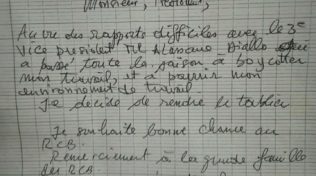 Monsieur,
Au vu des rapports difficiles avec le 3e
Vice président Mr Alassane Diallo qui
a passé toute la saison à boycotter
mon travail, et à pourrir mon
environnement de travail
Je décide de rendre le tablier
Je souhaite bonne chance au
RCB.
Remerciement à la grande famille
du RCB.